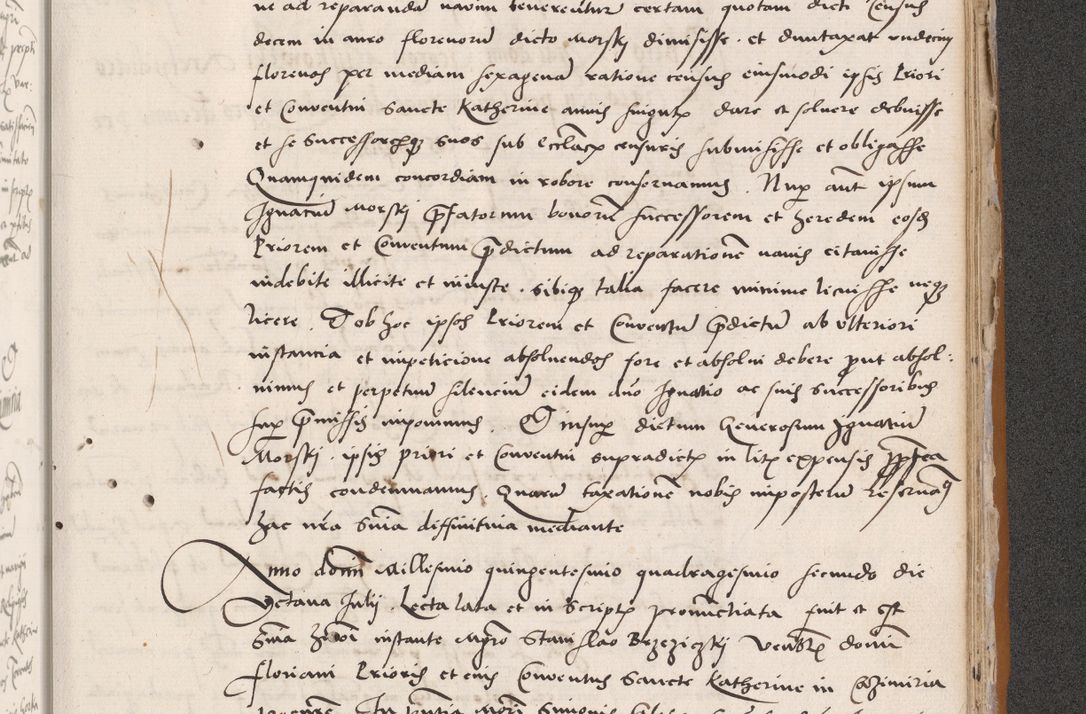 ne ad reparandũ navim tenerentur certam quotam dicti census
decem in auro florenorũ dicto Morskj dimisisse et dumtaxat undecim
florenos per mediam sexagenã ratione census eiusmodi ipsis Priori
et Conventui Sancte Katherine annis singul dare et solvere debuisse
et se successoresq suos sub eccl̃iac censuris submisisse et obligasse
Quamquidem concordiam in robore conservamus . Nup aut ipsum
Ignaciũ Morskj p̃fatorum bonorũ successorem et heredem eosd
Priorem et Conventum p̃dictum ad reparationẽ navis citavisse
indebite illicite et iniuste . sibiq talia facere minime licuisse neq
licere . Et ob hoc ipsos Priorem et Conventũ p̃dictũ ab ulteriori
instancia et impeticione absolvendos fore et absolvi debere put absol:
vimus et perpetuũ silenciũ eidem dño Ignatio ac suis successoribus
sup p̃missis imponimus . Et insup dictum Generosum Ignatiũ
Morskj . ipsis priori et Conventui supradict in lit expensis ppterea
factis condemnamus . Quarũ taxationẽ nobis imposterũ reservaq
hac nr̃a Sñia diffinitiva mediante
Anno domĩ Millesimo quingentesimo quadragesimo secundo die
Octava Julij . Lecta lata et in Script pronũctiata fuit et est
Sñia hmõi instante Mgrõ Stanislao Brzeziczkj Venẽb domĩ
Floriani Prioris et eius Conventus Sancte Katherine in Cazimiria